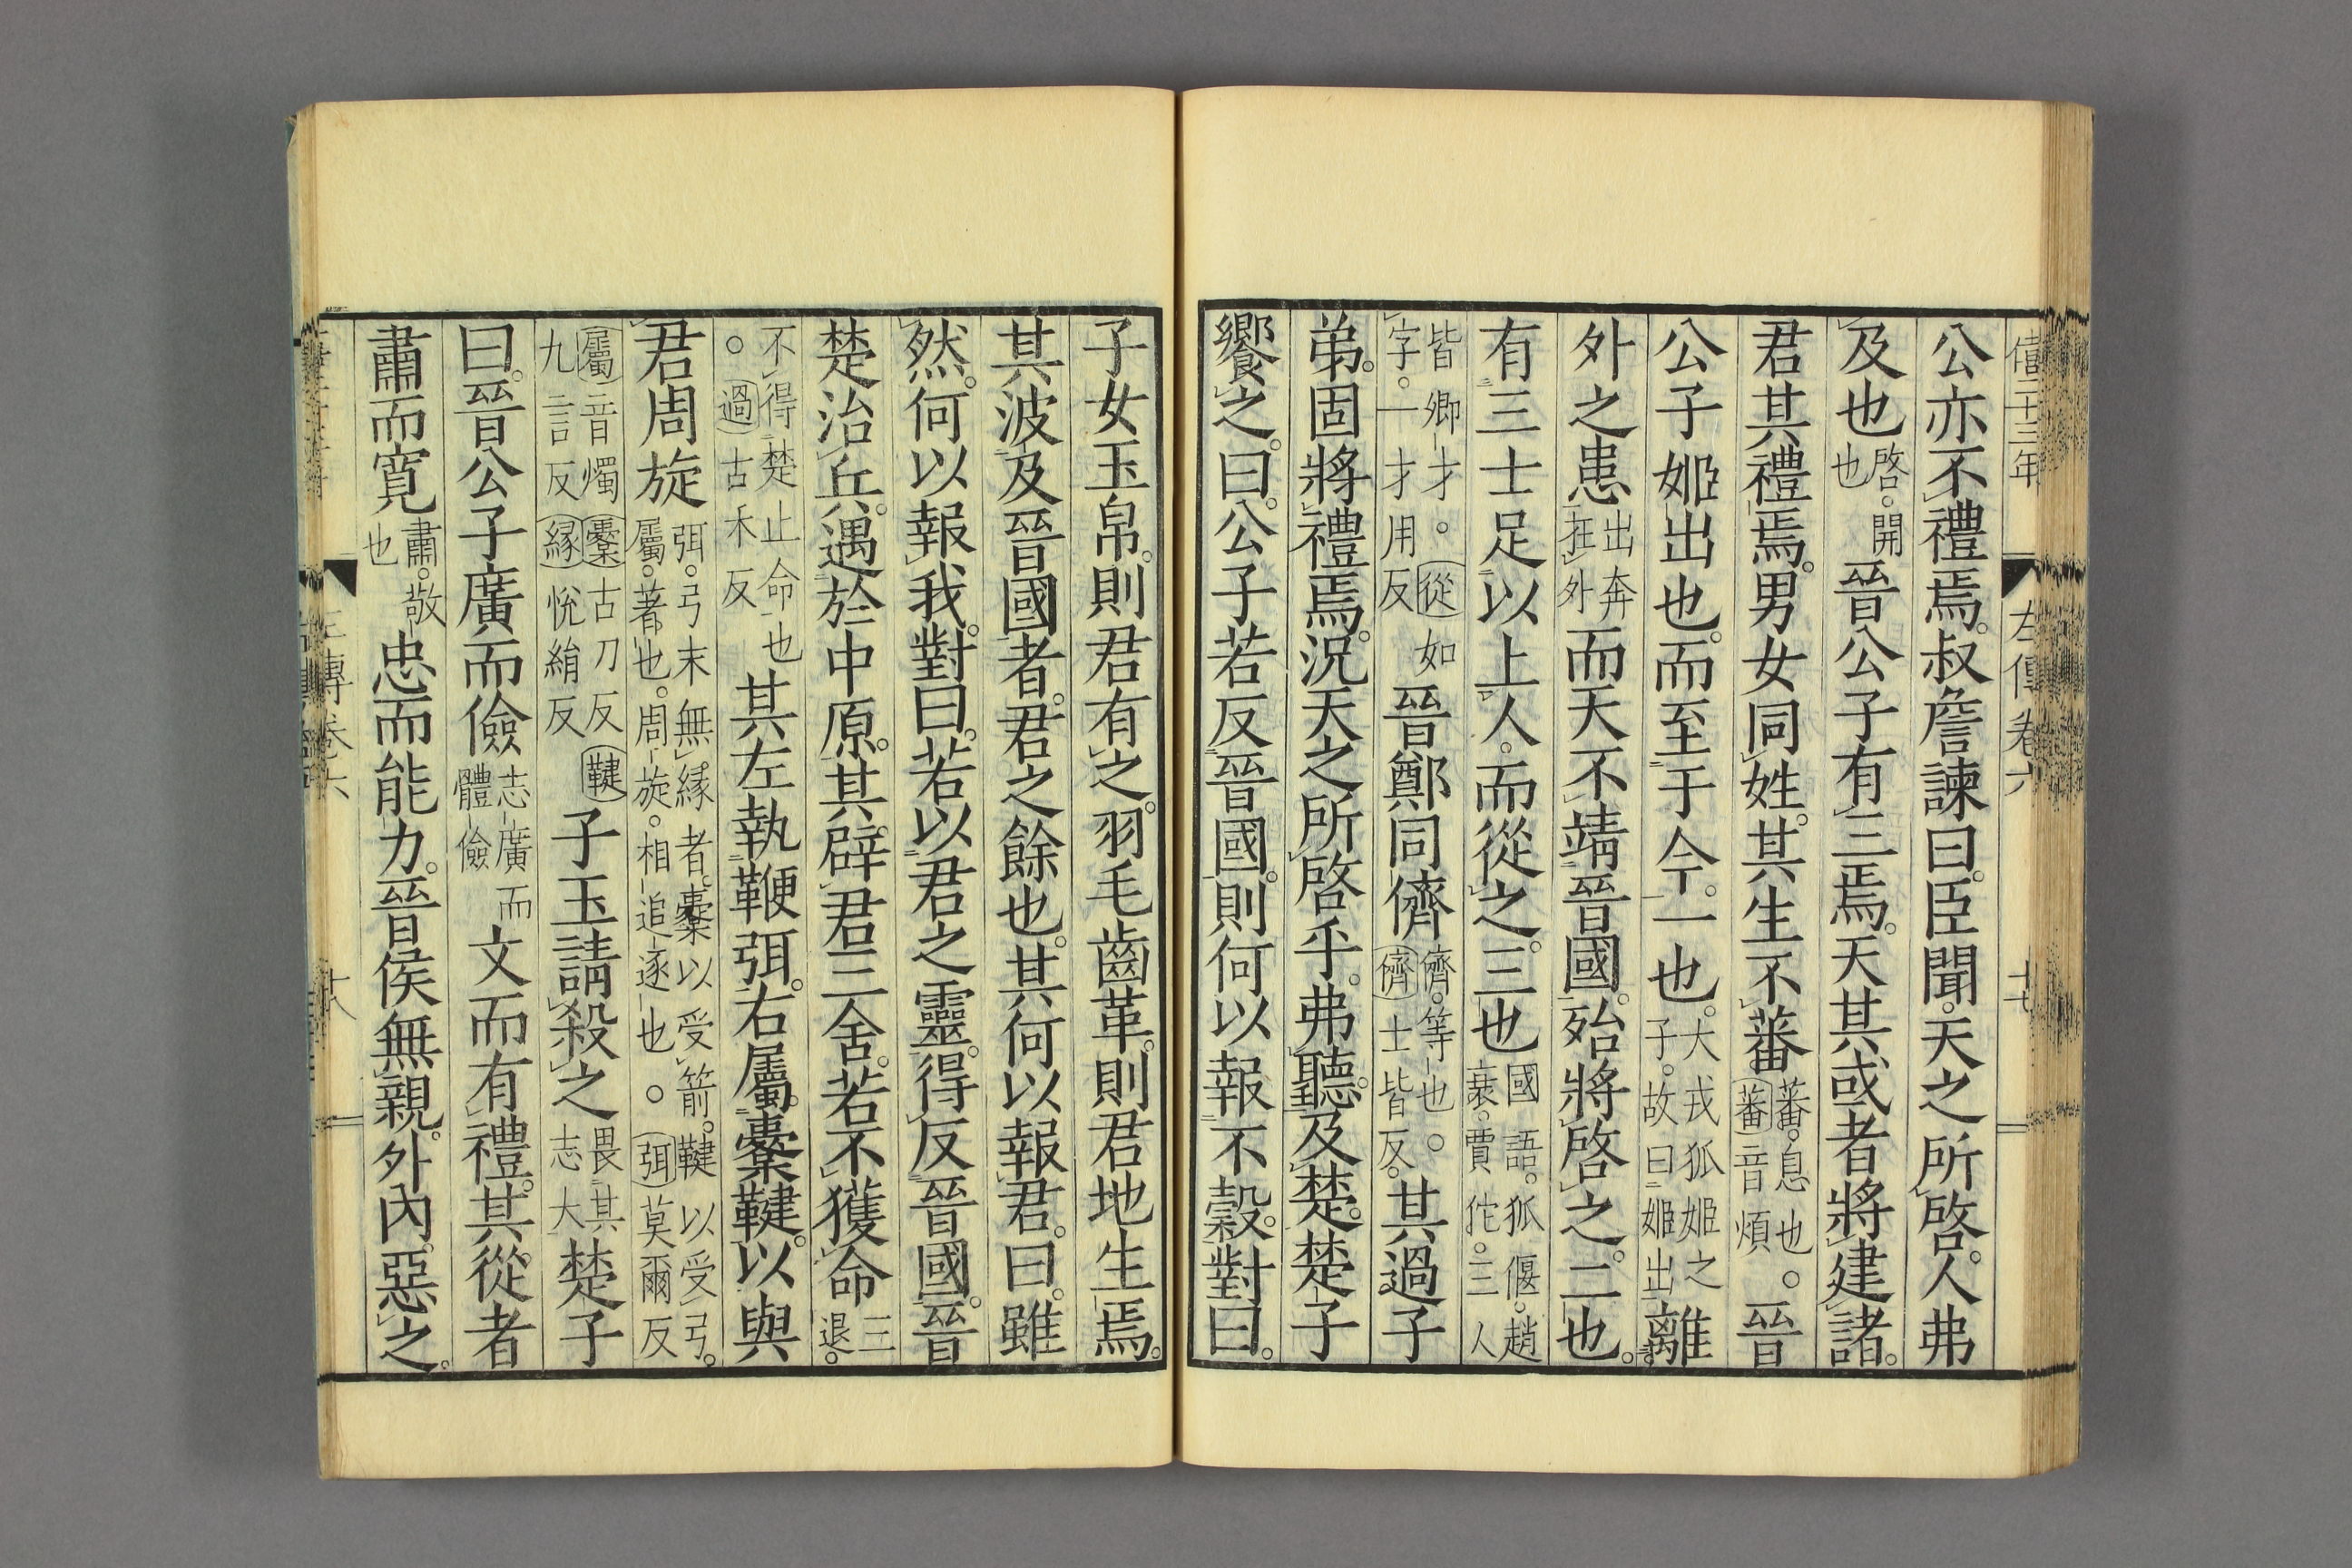 僖二十三年 左傳卷六 十七
公亦不禮焉。叔詹諫曰。臣聞。天之所啓。人弗
及也啓。開也晉公子有三焉。天其或者將建諸。
君其禮焉。男女同姓。其生不蕃蕃。息也。蕃音煩晉
公子姬出也。而至于今。一也。大戎狐姬之子。故曰姬出離
外之患出奔在外而天不靖晉國。殆將啓之。二也。
有三士足以上人。而從之。三也國語。狐偃。趙衰。賈佗。三人
皆卿才。從如字。一才用反晉鄭同儕儕。等也。儕士皆反。其過子
弟。固將禮焉。況天之所啓乎。弗聽。及楚。楚子
饗之。曰。公子若反晉國。則何以報不穀。對曰。
子女玉帛。則君有之。羽毛齒革。則君地生焉。
其波及晉國者。君之餘也。其何以報君。曰。雖
然。何以報我。對曰。若以君之靈。得反晉國。晉
楚治兵。遇於中原。其辟君三舍。若不獲命三退。
不得楚止命也。過古禾反其左執鞭弭。右屬櫜鞬。以與
君周旋弭。弓末無緣者。櫜以受箭。鞬以受弓。屬。著也。周旋。相追逐也。弭莫爾反
屬音燭櫜古刀反鞬九言反緣悅絹反子玉請殺之畏其志大楚子
曰。晉公子廣而儉志廣而體儉文而有禮。其從者
肅而寬肅。敬也忠而能力。晉侯無親。外內惡之。
左傳卷六 十八